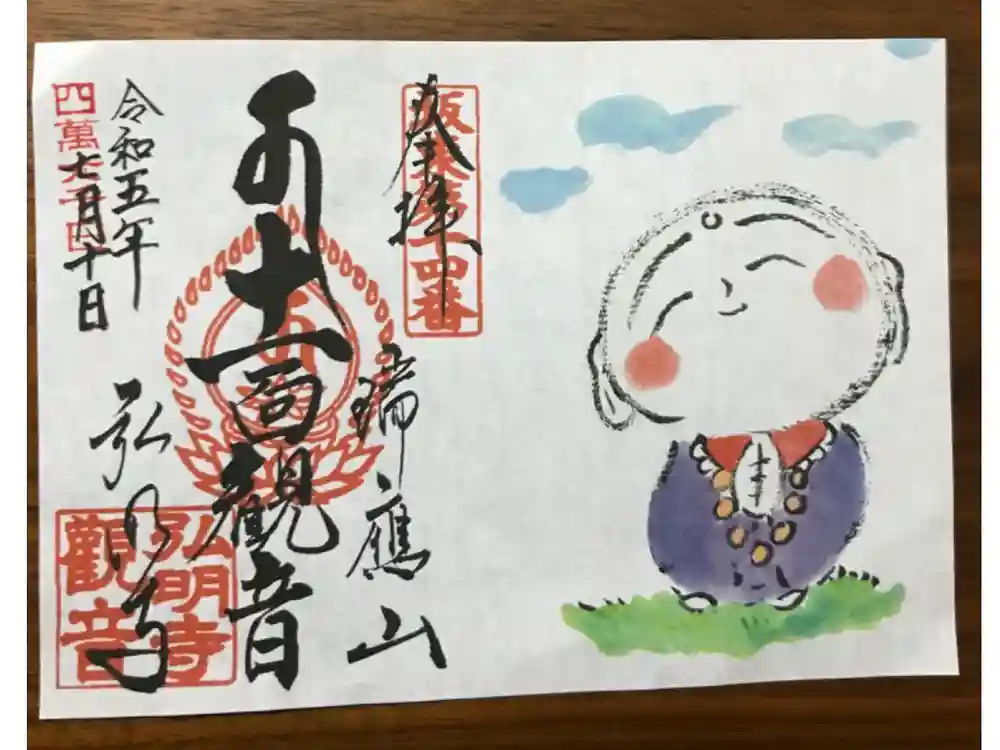 奉拝
坂東第十四番
瑞應山
十一面観音
弘明寺
弘明寺
觀音
令和五年
七月十日
四萬六千日